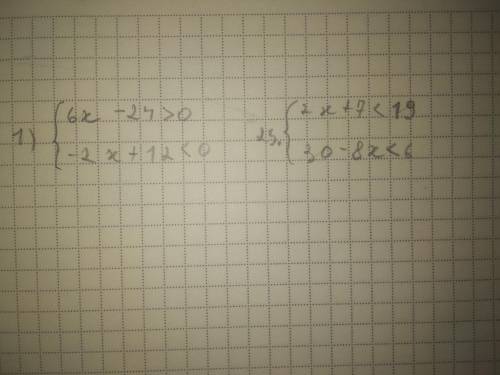 1) { 6x - 24 > 0
-2x + 12 < 0
2). { 2x + 7 < 19
30 - 8x < 6